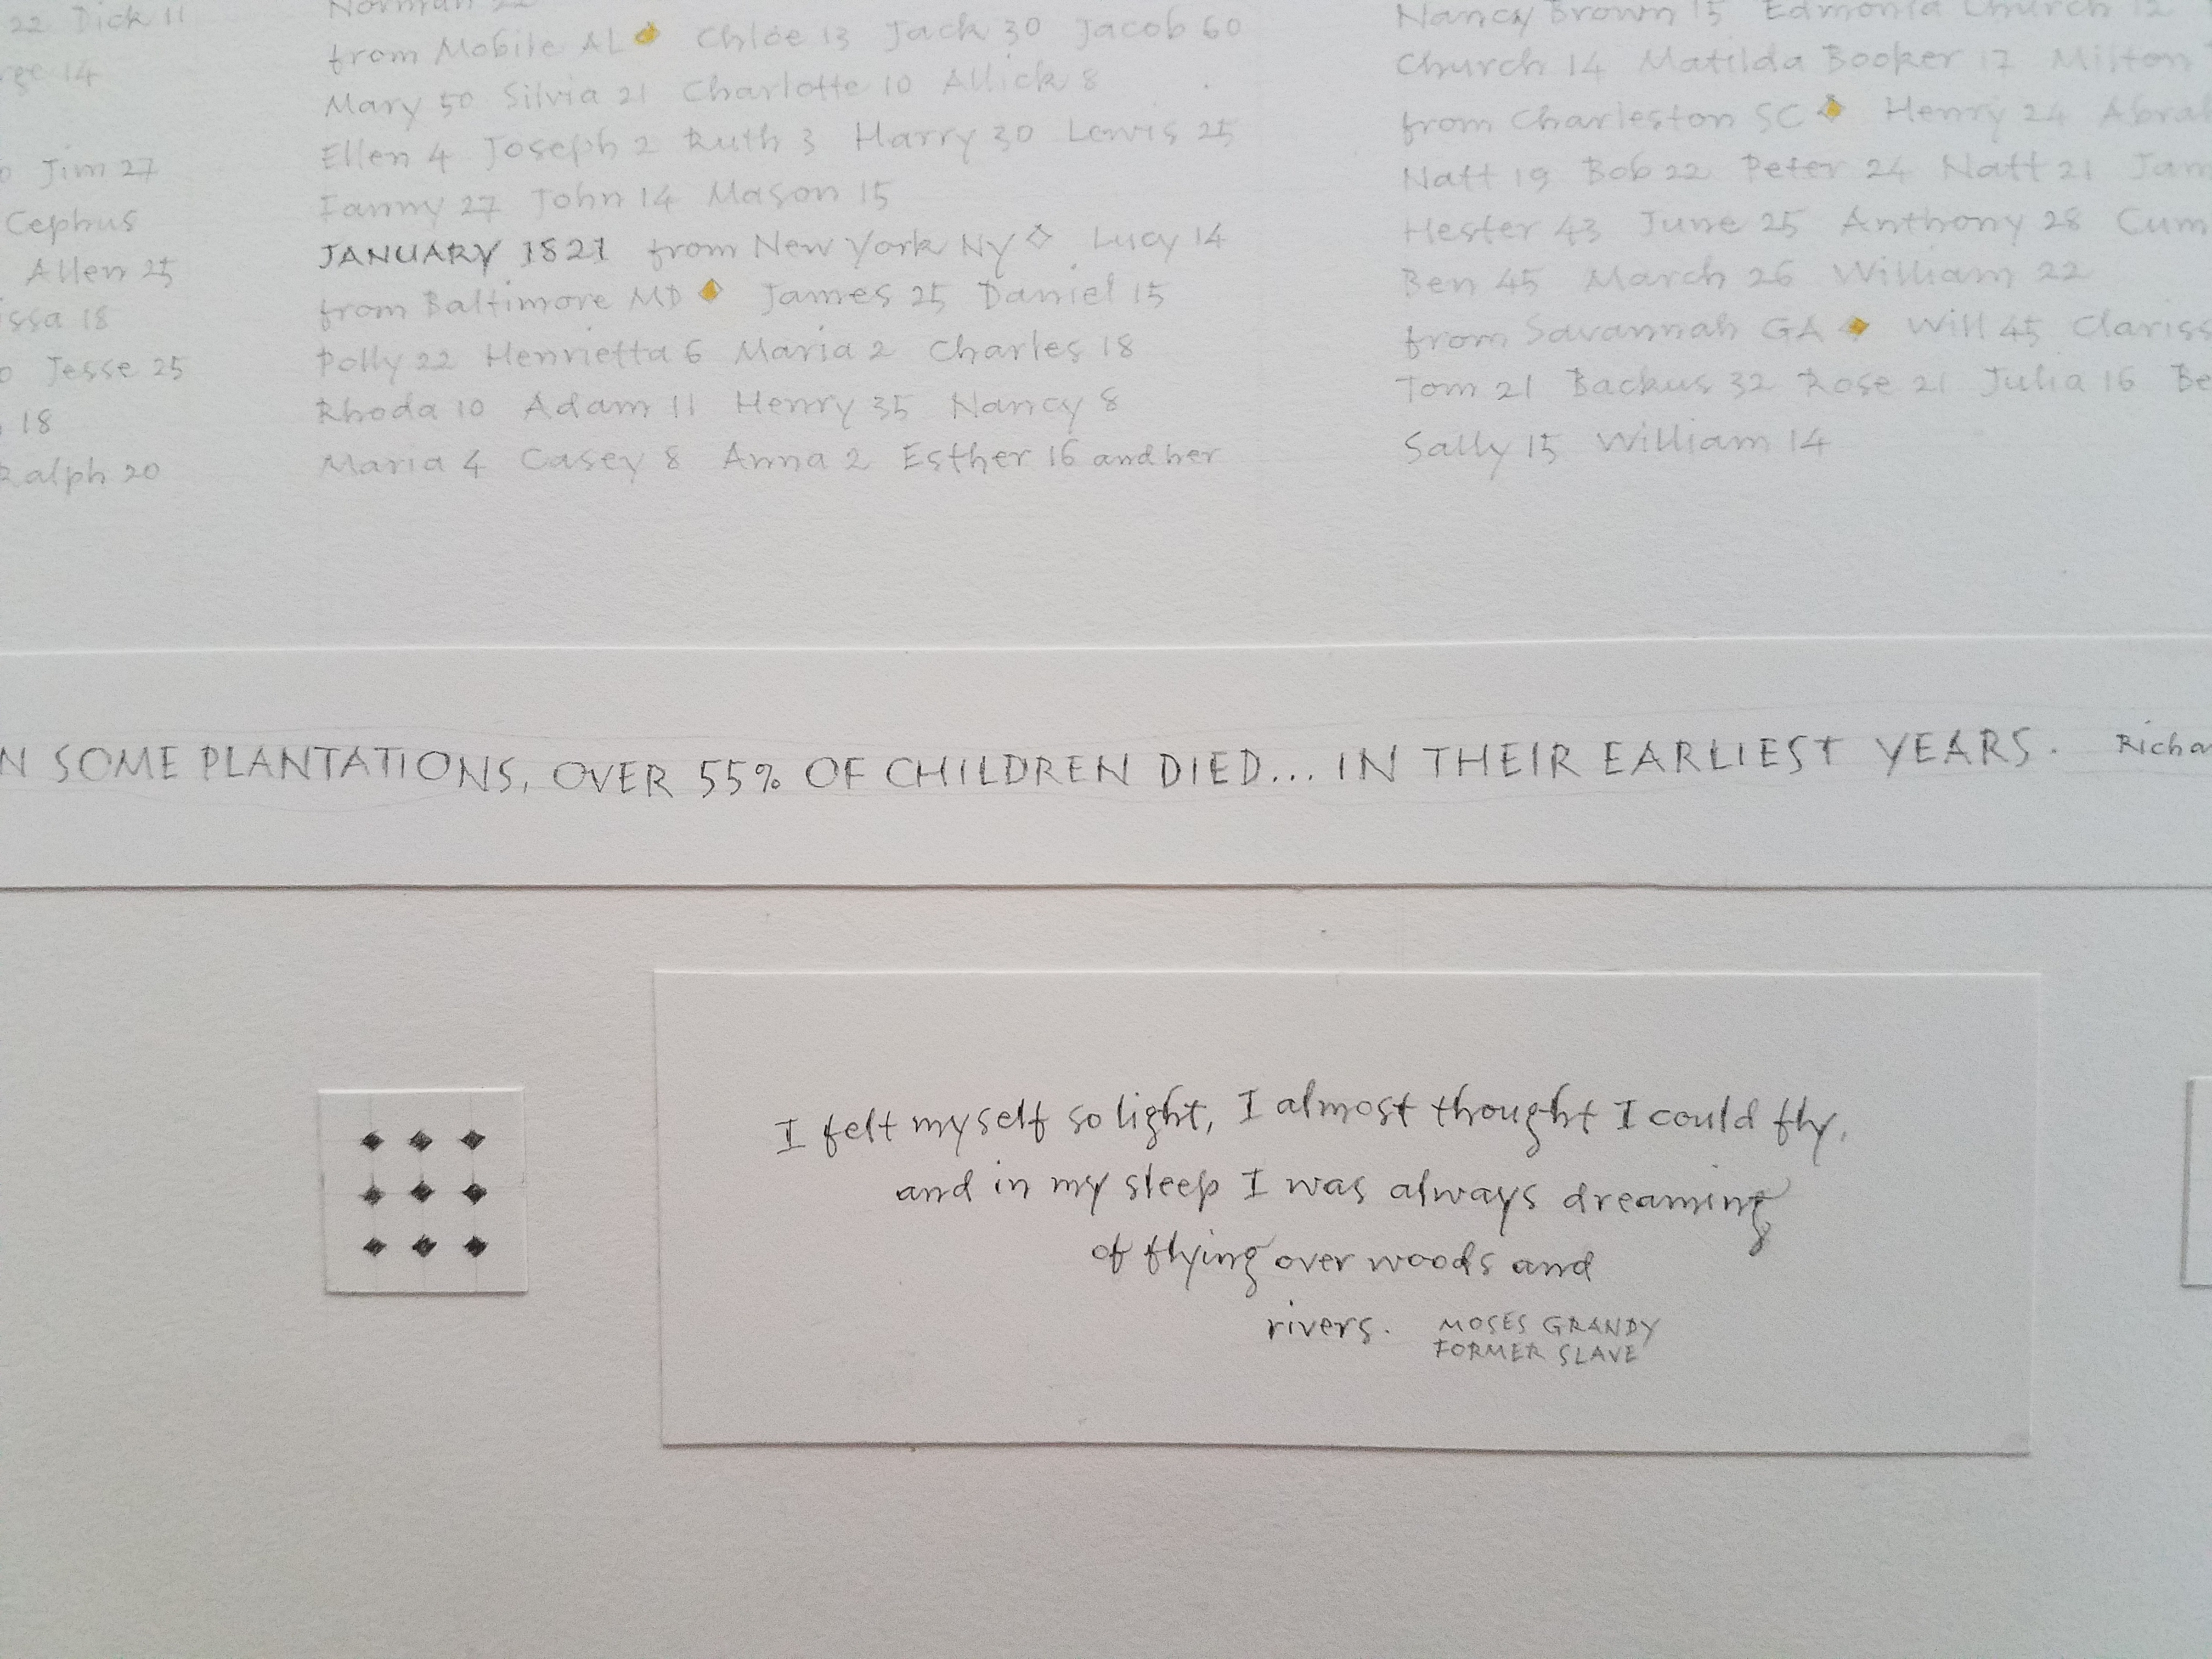 22 Dick 11
14
Jim 27
Cephus
Allen 25
18
Jesse 25
18
Ralph 20
Norman 22
from Mobile AL Chloe 13 Jack 30 Jacob 60
Mary 50 Silvia 21 Charlotte 10 Allick 8
Ellen 4 Joseph 2 Ruth 3 Harry 30 Lewis 25
Fanny 27 John 14 Mason 15
JANUARY 1821 from New York NY Lucy 14
from Baltimore MD James 25 Daniel 15
Polly 22 Henrietta 6 Maria 2 Charles 18
Rhoda 10 Adam 11 Henry 35 Nancy 8
Maria 4 Casey 8 Anna 2 Esther 16 and her
Nancy Brown 15 Edmonia Church 12
Church 14 Matilda Booker 17 Milton
from Charleston SC Henry 24
Natt 19 Bob 22 Peter 24 Natt 21
Hester 43 June 25 Anthony 28
Ben 45 March 26 William 22
from Savannah GA Will 45
Tom 21 Backus 32 Rose 21 Julia 16
Sally 15 William 14
SOME PLANTATIONS, OVER 55% OF CHILDREN DIED... IN THEIR EARLIEST YEARS.
I felt myself so light, I almost thought I could fly,
and in my sleep I was always dreaming
of flying over woods and
rivers. MOSES GRANDY
FORMER SLAVE